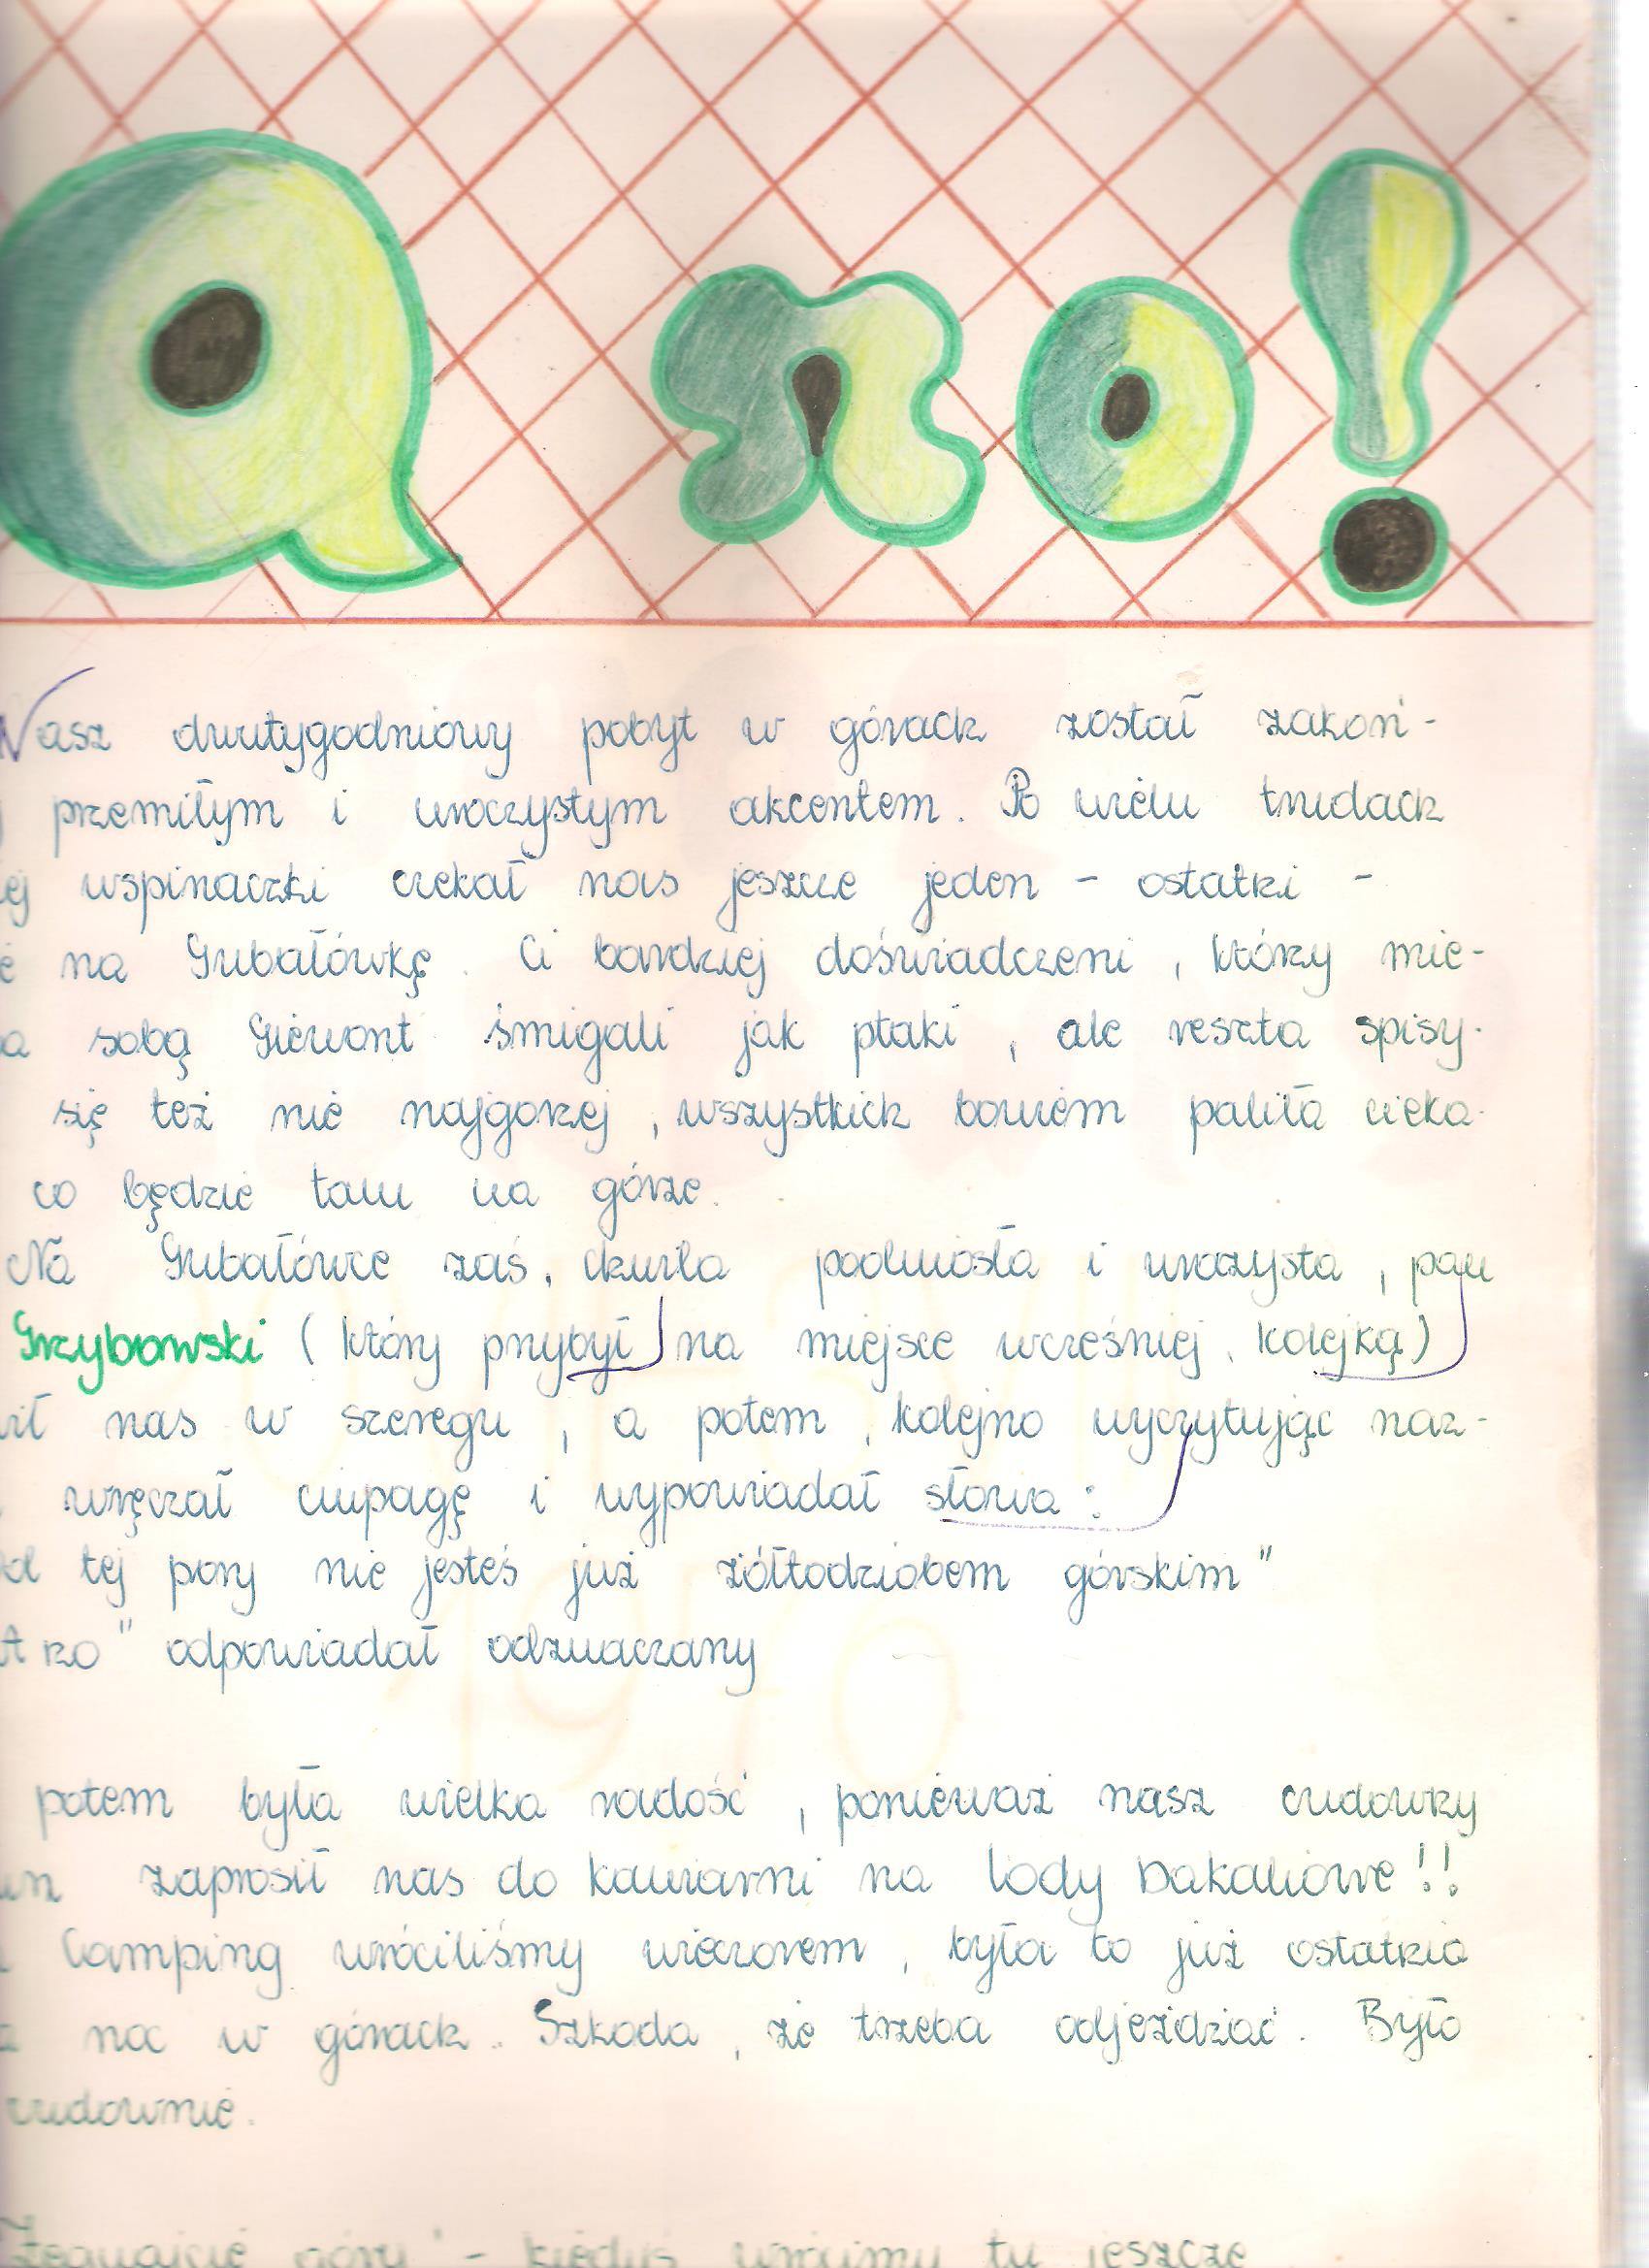 a ro!
Nasz dwutygodniowy pobyt w górach został zakoń-
przemiłym i uroczystym akcentem. Po wielu trudach
ej wspinaczki czekał nas jeszcze jeden - ostatki -
ć na Gubałówkę. Ci bardziej doświadczeni, którzy mie-
a sobą Giewont śmigali jak ptaki, ale reszta spisy-
się też nie najgorzej, wszystkich bowiem paliła cieka-
co będzie tam na górze.
Na Gubałówce zaś, chwila podniosła i uroczysta, pan
Grzybowski (który przybył na miejsce wcześniej, kolejką)
ił nas w szeregu, a potem, kolejno wyczytując naz-
wręczał ciupagę i wypowiadał słowa:
od tej pory nie jesteś już żółtodziobem górskim"
A ro" odpowiadał odznaczany
potem była wielka radość, ponieważ nasz cudowny
zaprosił nas do kawiarni na lody bakaliowe!!
Camping wróciliśmy wieczorem, była to już ostatnia
noc w górach. Szkoda, że trzeba odjeżdżać. Było
cudownie.
Żegnajcie góry" - kiedyś wrócimy tu jeszcze